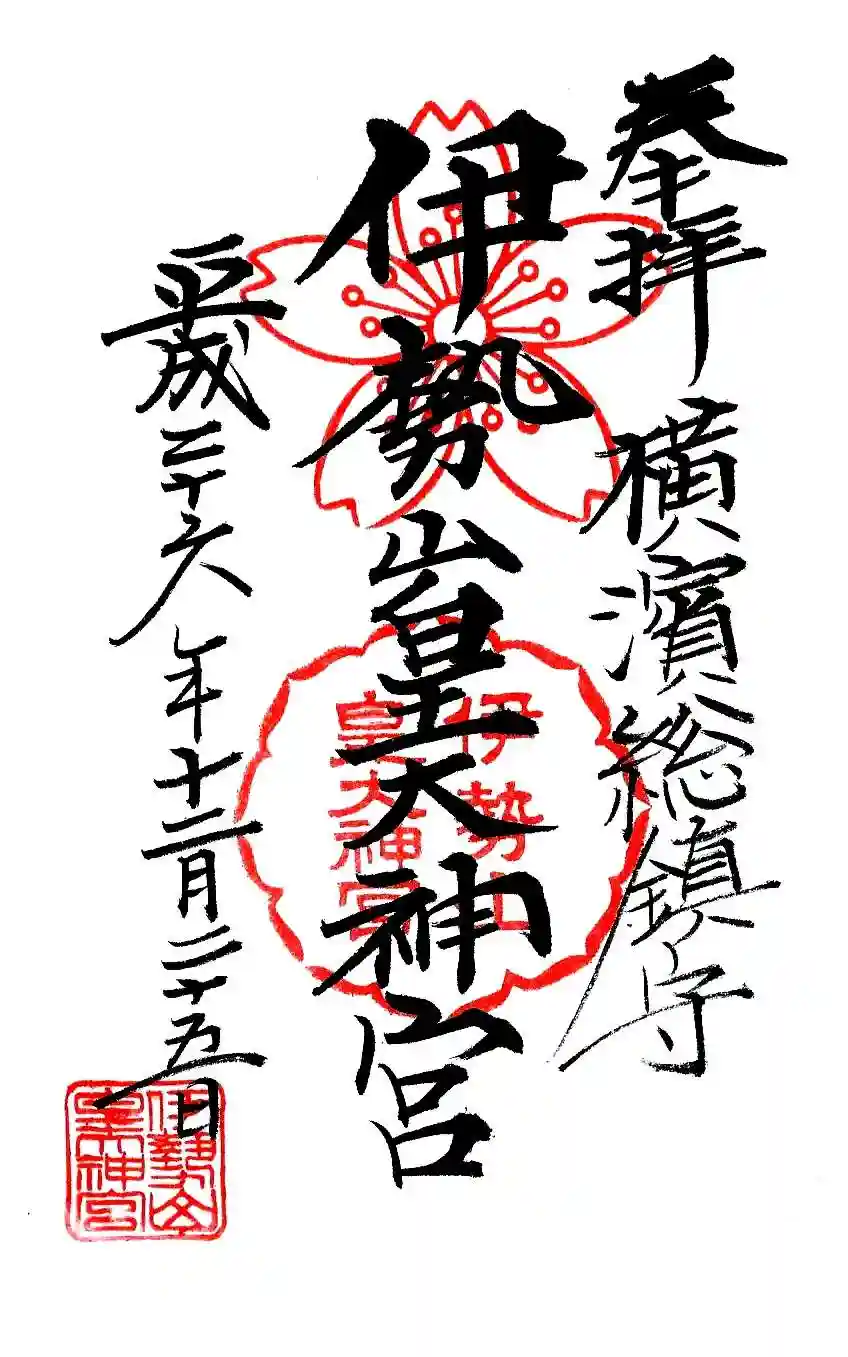 奉拝 横濱総鎮守
伊勢山皇大神宮
平成二十六年十二月二十五日
伊勢山
皇大神宮
伊勢山
皇大神宮